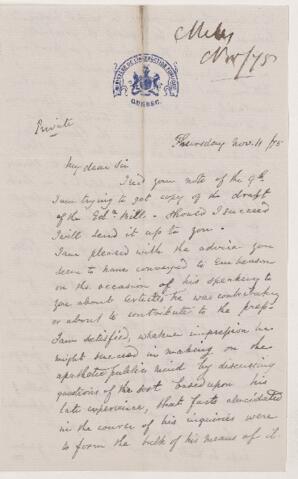 Miles
Nov/75
MINISTÈRE DE L'INSTRUCTION PUBLIQUE
QUEBEC.
Private
Thursday Nov. 11/75
My dear Sir
I recd your note of the 9th
I am trying to get copy of the draft
of the Edl. Bill. - Should I succeed
I will send it up to you.
I am pleased with the advice you
seem to have conveyed to Emberson
on the occasion of his speaking to
you about articles he was contributing
or about to contribute to the press.
I am satisfied, whatever impression he
might succeed in making on the
apathetic public mind by discussing
questions of the sort based upon his
late experience, that facts elucidated
in the course of his inquiries were
to form the bulk of his means of it